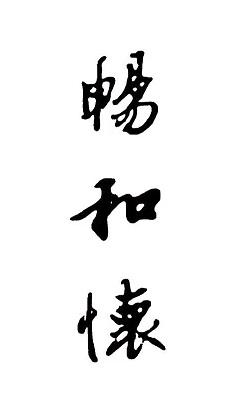 暢和懷